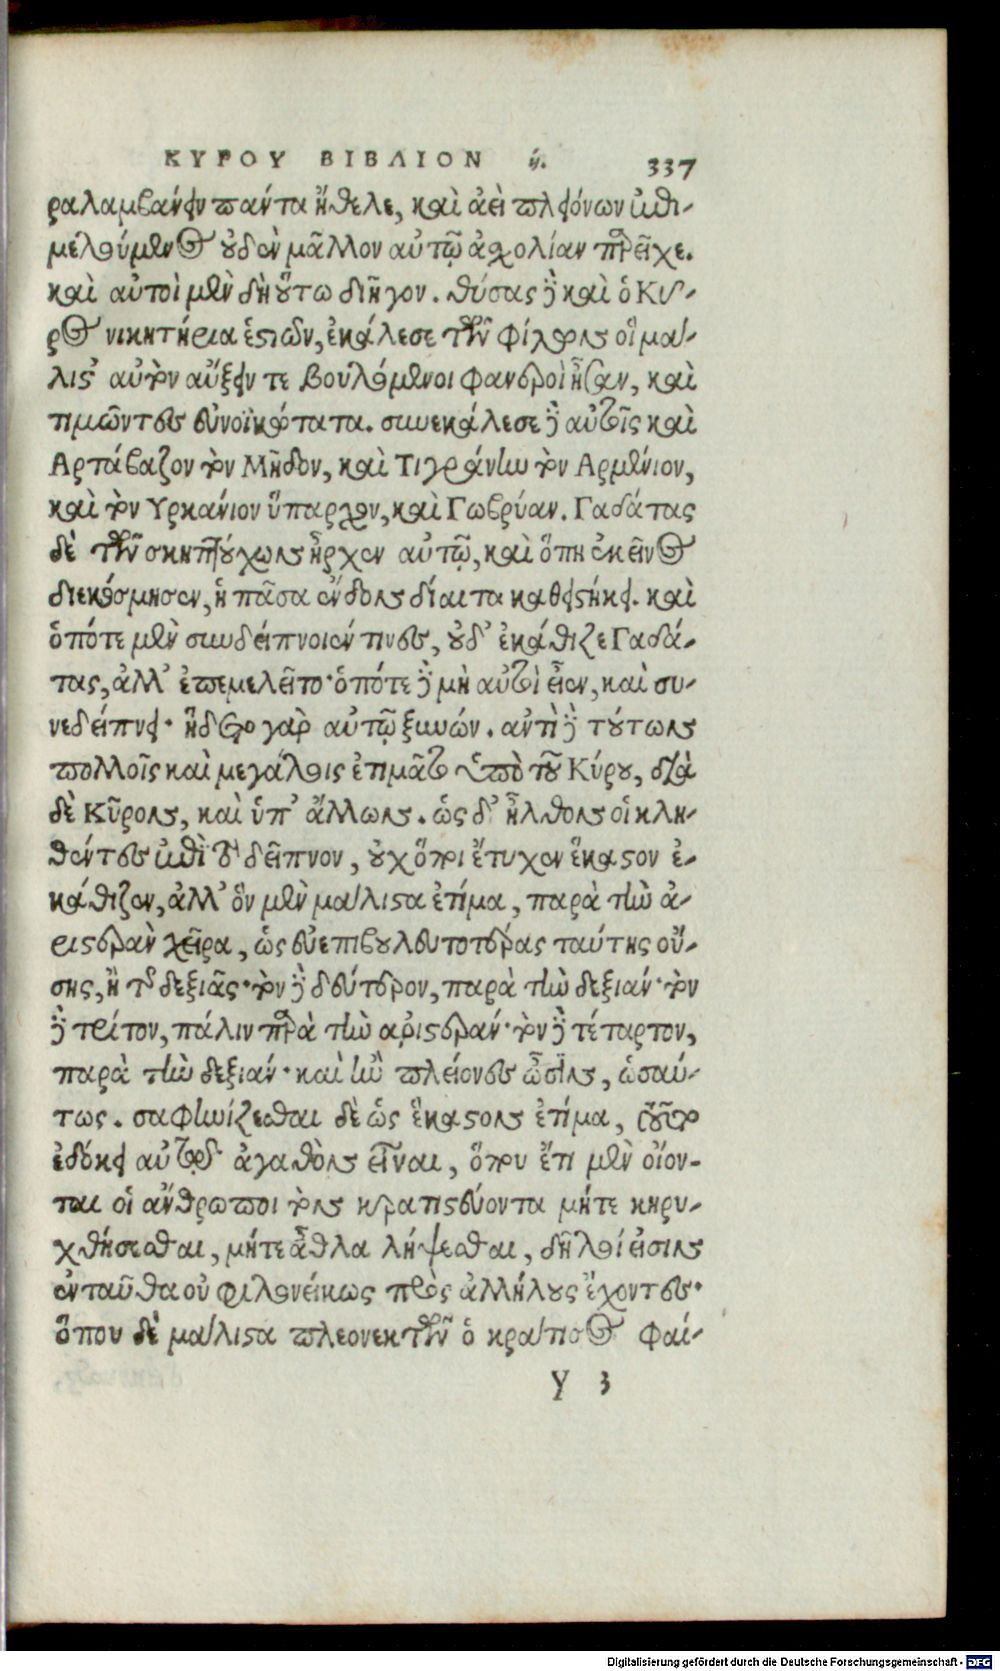 ΚΥΡΟΥ ΒΙΒΛΙΟΝ ή. 337
ραλαμβάνειν πάντα ἤθελε, καὶ ἀεὶ πλειόνων ἐπι-
μελούμενος οὐδὲν μᾶλλον αὐτῷ ἀσχολίαν παρεῖχε.
καὶ αὐτοὶ μὲν δὴ οὕτω διῆγον. θύσας δὲ καὶ ὁ Κῦ-
ρος νικητήρια ἑστιῶν, ἐκάλεσε τῶν φίλων οἳ μά-
λιστ' αὐτὸν αὔξειν τε βουλόμενοι φανεροὶ ἦσαν, καὶ
τιμῶντες εὐνοϊκώτατα. συνεκάλεσε δὲ αὐτοῖς καὶ
Αρτάβαζον τὸν Μῆδον, καὶ Τιγράνην τὸν Αρμένιον,
καὶ τὸν Υρκάνιον ὕπαρχον, καὶ Γωβρύαν. Γαδάτας
δὲ τῶν σκηπτούχων ἦρχεν αὐτῷ, καὶ ὅπη ἐκεῖνος
διεκόσμησεν, ἡ πᾶσα ἔνδον δίαιτα καθειστήκει. καὶ
ὁπότε μὲν συνδείπνοιέν τινες, οὐδ' ἐκάθιζε Γαδά-
τας, ἀλλ' ἐπεμελεῖτο· ὁπότε δὲ μὴ αὐτοὶ εἶεν, καὶ συ-
νεδείπνει· ἥδετο γὰρ αὐτῷ ξυνών. ἀντὶ δὲ τούτων
πολλοῖς καὶ μεγάλοις ἐτιμᾶτο ὑπὸ τοῦ Κύρου, διὰ
δὲ Κῦρον, καὶ ὑπ' ἄλλων. ὡς δ' ἦλθον οἱ κλη-
θέντες ἐπὶ τὸ δεῖπνον, οὐχ ὅποι ἔτυχεν ἕκαστον ἐ-
κάθιζεν, ἀλλ' ὃν μὲν μάλιστα ἐτίμα, παρὰ τὴν ἀ-
ριστερὰν χεῖρα, ὡς εὐεπιβουλευτοτέρας ταύτης οὔ-
σης, ἢ τῆς δεξιᾶς· τὸν δὲ δεύτερον, παρὰ τὴν δεξιάν· τὸν
δὲ τρίτον, πάλιν παρὰ τὴν ἀριστεράν· τὸν δὲ τέταρτον,
παρὰ τὴν δεξιάν· καὶ ἢν πλείονες ὦσιν, ὡσαύ-
τως. σαφηνίζεσθαι δὲ ὡς ἕκαστον ἐτίμα, τοῦτο
ἐδόκει αὐτῷ ἀγαθὸν εἶναι, ὅπου ἔτι μὲν οἴον-
ται οἱ ἄνθρωποι τὸν κρατιστεύοντα μήτε κηρυ-
χθήσεσθαι, μήτε ἆθλα λήψεσθαι, δῆλοί εἰσιν
ἐνταῦθα οὐ φιλονείκως πρὸς ἀλλήλους ἔχοντες·
ὅπου δὲ μάλιστα πλεονεκτῶν ὁ κράτιστος φαί-
Y 3
Digitalisierung gefördert durch die Deutsche Forschungsgemeinschaft - DFG